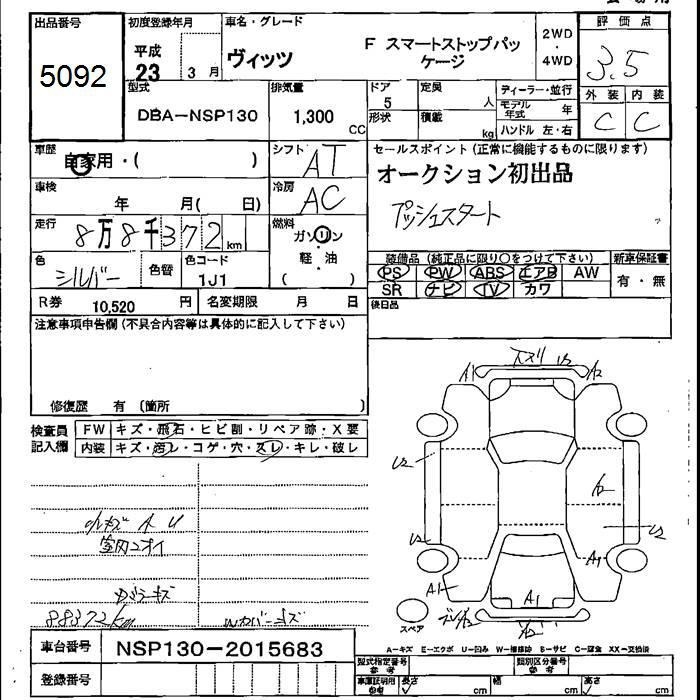 出品番号 初度登録年月 車名・グレード 評価点
5092 平成 23 3月 ヴィッツ F スマートストップパッケージ 2WD・4WD 3.5
型式 排気量 ドア 定員 ディーラー・並行 外装 内装
DBA-NSP130 1,300 CC 5 人 モデル年式 年 C C
形状 積載 kg ハンドル 左・右
車歴 自家用・( ) シフト AT セールスポイント(正常に機能するものに限ります)
オークション初出品
車検 年 月( 日) 冷房 AC
プッシュスタート
走行 8万8千372km 燃料 ガソリン・軽・油 ( )
色 シルバー 色替 色コード 1J1
装備品(純正品に限り〇をつけて下さい) 新車保証書
PS PW ABS エアB AW 有・無
SR ナビ TV カワ
R券 10,520 円 名変期限 月 日
後日品
注意事項申告欄(不具合内容等は具体的に記入して下さい)
修復歴 有 (箇所 )
検査員記入欄 FW キズ・飛石・ヒビ割・リペア跡・X要
内装 キズ・汚レ・コゲ・穴・スレ・キレ・破レ
A1 U2 A2
U2 A2 U2
U2 A1
小キズ A U
室内ニオイ
A1 A1
88372km
スペア
A-キズ E-エクボ U-凹み W-補修跡 S-サビ C-腐食 XX-交換済
車台番号 NSP130-2015683
型式指定番号 参考 類別区分番号 参考
登録番号
車庫証明用 参考 長さ cm 幅 cm 高さ cm